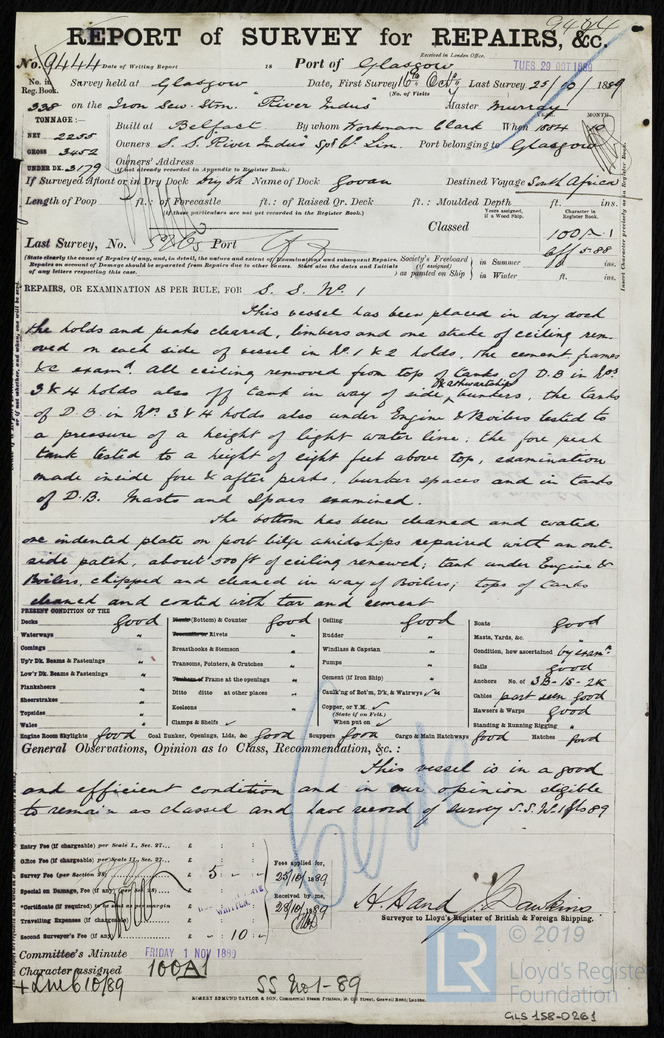 9434
REPORT of SURVEY for REPAIRS, &c.
Received in London Office.
No. 9444 Date of Writing Report 18 Port of Glasgow TUES 29 OCT 1889
No. in Reg. Book. Survey held at Glasgow Date, First Survey 16th Octr Last Survey 25/10/1889
(No. of Visits)
338 on the Iron Scw. Stm. "River Indus" Master Murray
TONNAGE:— YEAR. MONTH.
NET 2255 Built at Belfast By whom Workman Clark When 1884 10
GROSS 3452 Owners S.S. River Indus Spg Co Lim. Port belonging to Glasgow
UNDER DK. 3179 Owners' Address
(If not already recorded in Appendix to Register Book.)
If Surveyed Afloat or in Dry Dock Dry Dk Name of Dock Govan Destined Voyage South Africa
Length of Poop ft.: of Forecastle ft.: of Raised Qr. Deck ft.: Moulded Depth ft. ins.
(If these particulars are not yet recorded in the Register Book.)
Years assigned, if a Wood Ship. Character in Register Book.
Classed 100A-1
Last Survey, No. Port 5.88
(State clearly the cause of Repairs if any, and, in detail, the nature and extent of Examinations and subsequent Repairs. Repairs on account of Damage should be separated from Repairs due to other causes. State also the dates and Initials of any letters respecting this case.
Society's Freeboard (if assigned) as painted on Ship} in Summer ft. ins.
in Winter ft. ins.
Insert Character precisely as in Register Book.
REPAIRS, OR EXAMINATION AS PER RULE, FOR S. S. No. 1
This vessel has been placed in dry dock
the holds and peaks cleared, limbers and one strake of ceiling rem-
oved on each side of vessel in No. 1 & 2 holds, the cement frames
&c examd all ceiling removed from top of tanks of D.B in Nos
3 & 4 holds also off tank in way of side & athwartship bunkers, the tanks
of D.B. in Nos. 3 & 4 holds also under Engine & Boilers tested to
a pressure of a height of light water line; the fore peak
tank tested to a height of eight feet above top, examination
made inside fore & after peaks, bunker spaces and in tanks
of D.B. Masts and Spars examined.
The bottom has been cleaned and coated
one indented plate on port bilge amidships repaired with an out-
side patch, about 500 ft of ceiling renewed; tank under Engine &
Boilers, chipped and cleaned in way of Boilers; tops of tanks
cleaned and coated with tar and cement
PRESENT CONDITION OF THE
Decks good
Waterways "
Comings "
Up'r Dk. Beams & Fastenings "
Low'r Dk. Beams & Fastenings "
Planksheers "
Sheerstrakes "
Topsides "
Wales "
Engine Room Skylights good
(Bottom) & Counter good
Rivets "
Breasthooks & Stemson "
Transoms, Pointers, & Crutches "
Frame at the openings "
Ditto ditto at other places "
Keelsons "
Clamps & Shelfs ✓
Coal Bunker, Openings, Lids, &c good
Ceiling good
Rudder "
Windlass & Capstan "
Pumps "
Cement (if Iron Ship) "
Caulk'ng of Bot'm, D'k, & Waterways ✓
Copper, or Y.M. ✓
(State if on Felt.)
When put on ✓
Scuppers good
Cargo & Main Hatchways good
Boats good
Masts, Yards, &c. "
Condition, how ascertained by examn
Sails good
Anchors No. of 3B-1S-2K
Cables part seen good
Hawsers & Warps good
Standing & Running Rigging "
Hatches good
General Observations, Opinion as to Class, Recommendation, &c.:
This vessel is in a good
and efficient condition and in our opinion eligible
to remain as classed and have record of survey S.S. No. 1 Gls 89
Entry Fee (if chargeable) per Scale I., Sec. 27... £
Office Fee (if chargeable) per Scale II., Sec. 27... £
Survey Fee (per Section 28) £ 5 : - : -
Special on Damage, Fee (if any) £
*Certificate (if required) to be sent as per margin
Travelling Expenses (if chargeable) £
Second Surveyor's Fee (if any) £ - : 10 : -
Fees applied for, 25/10/1889
Received by me, 28/10/1889
H. Hand J. Dawkins
Surveyor to Lloyd's Register of British & Foreign Shipping.
Committee's Minute FRIDAY 1 NOV 1889
Character assigned 100A1
+ LMC 10/89 SS No 1-89
ROBERT EDMUND TAYLOR & SON, Commercial Steam Printers, 19, Old Street, Goswell Road, London.
LR
© 2019
Lloyd's Register
Foundation
GLS 158-0261